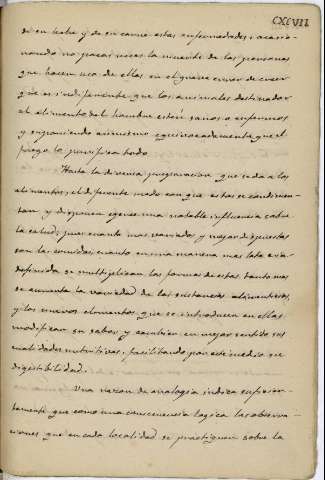 CXCVII
de su leche y de su carne estas enfermedades, ocasio-
nando no pocas veces la muerte de las personas
que hacen uso de ellas en el grave error de creer
que es indiferente que los animales destinados
al alimento del hombre esten sanos o enfermos
y suponiendo asimismo equivocadamente que el
fuego lo purifica todo.
Hasta la diversa preparacion que se da a los
alimentos, el diferente modo con que estos se condimen-
tan y disponen ejerce una notable influencia sobre
la salud; pues cuanto mas variadas y mejor dispuestas
son las comidas, cuanto en una manera mas lata e in-
definida se multiplican las formas de estas, tanto mas
se aumenta la variedad de las sustancias alimenticias,
y los nuevos elementos que se introducen en ellas
modifican su sabor y cambian en mejor sentido sus
cualidades nutritivas, facilitando por este medio su
digestibilidad.
Una razon de analogia indica suficien-
temente que como una consecuencia logica las observa-
ciones que en cada localidad se practiquen sobre la